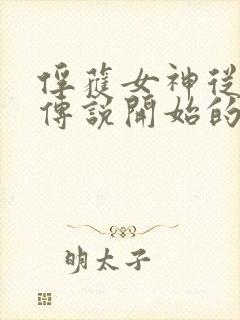 俘蒦女神從
傳說開始的
明太子